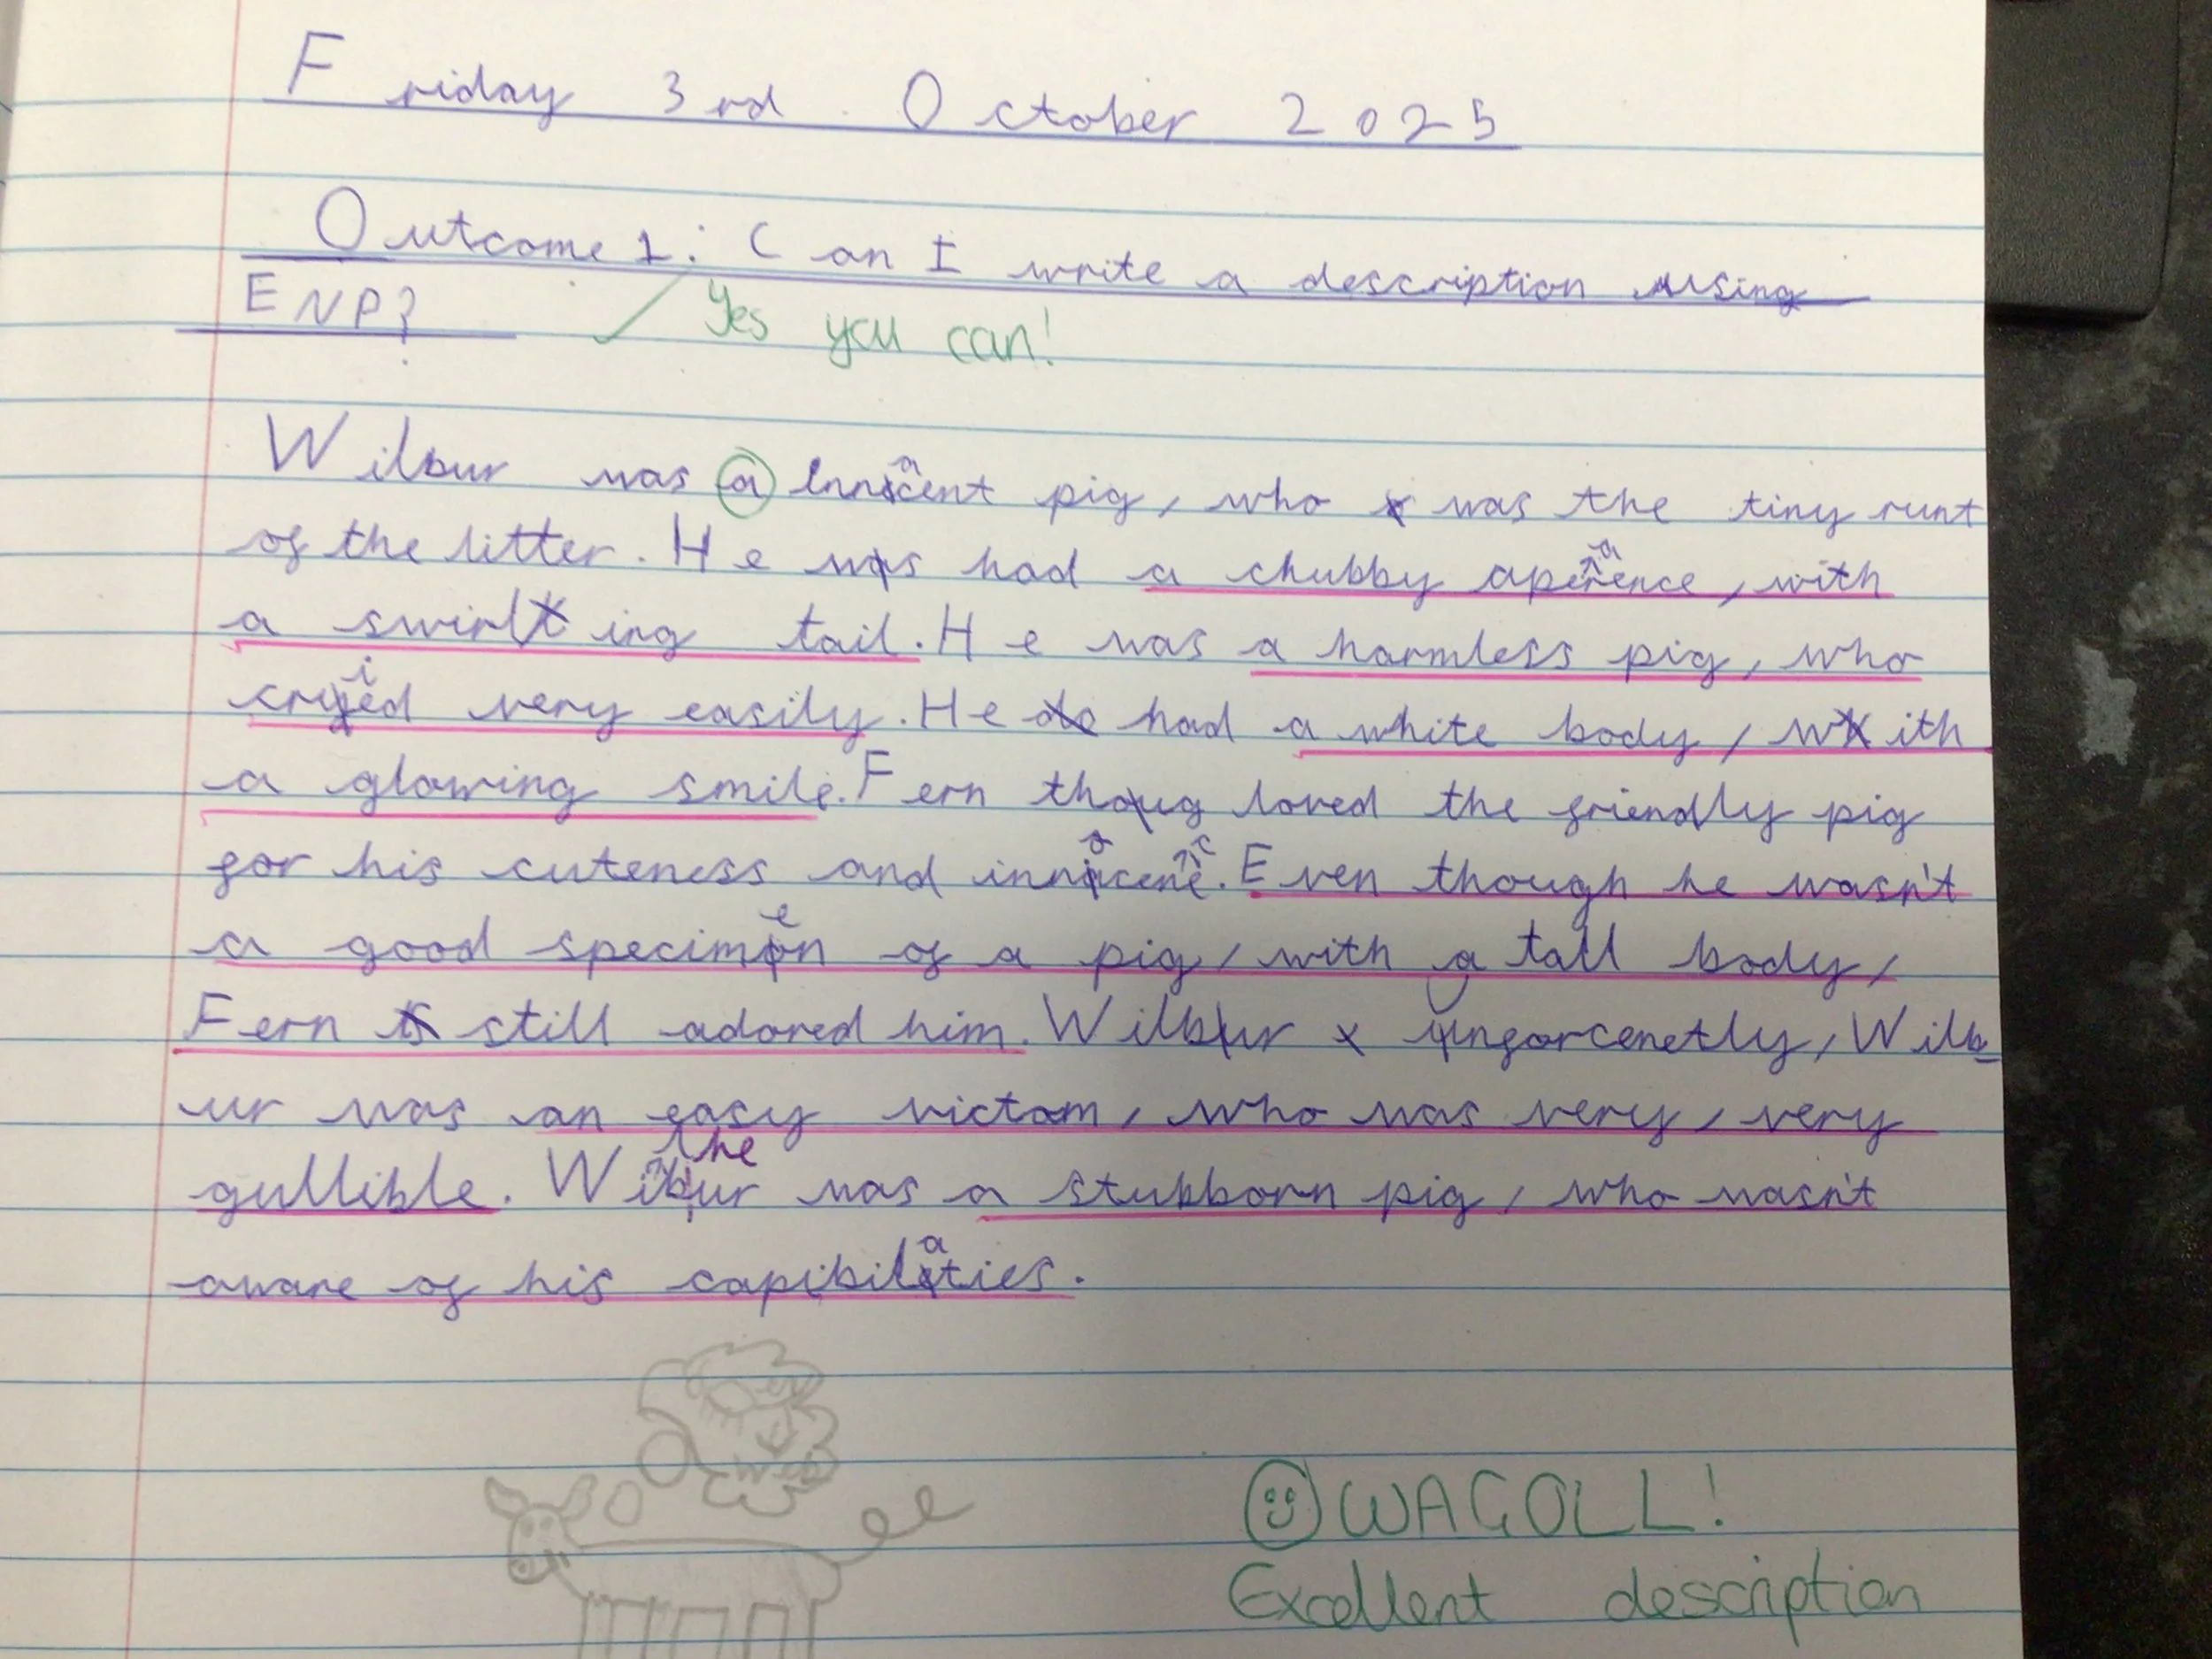 Friday 3rd October 2025
Outcome 1: Can I write a description using
ENP?
Yes you can!
Wilbur was a innacent pig, who was the tiny runt
of the litter. He had a chubby aperaence, with
a swirling tail. He was a harmless pig, who
cried very easily. He had a white body, with
a glowing smile. Fern loved the friendly pig
for his cuteness and innocence. Even though he wasn't
a good specimen of a pig, with a tall body,
Fern still adored him. ungorcenetly, Wilb-
ur was an easy victom, who was very, very
gullible. Wilbur the was a stubborn pig, who wasn't
aware of his capibilaties.
WAGOLL!
Excellent description